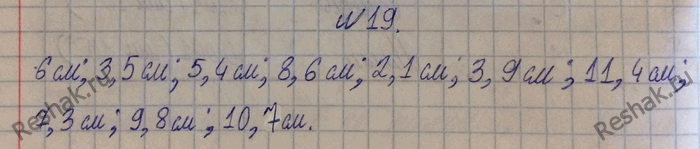 №19.
6 см; 3,5 см; 5,4 см; 8,6 см; 2,1 см; 3,9 см; 11,4 см;
7,3 см; 9,8 см; 10,7 см.
Reshak.ru
Reshak.ru